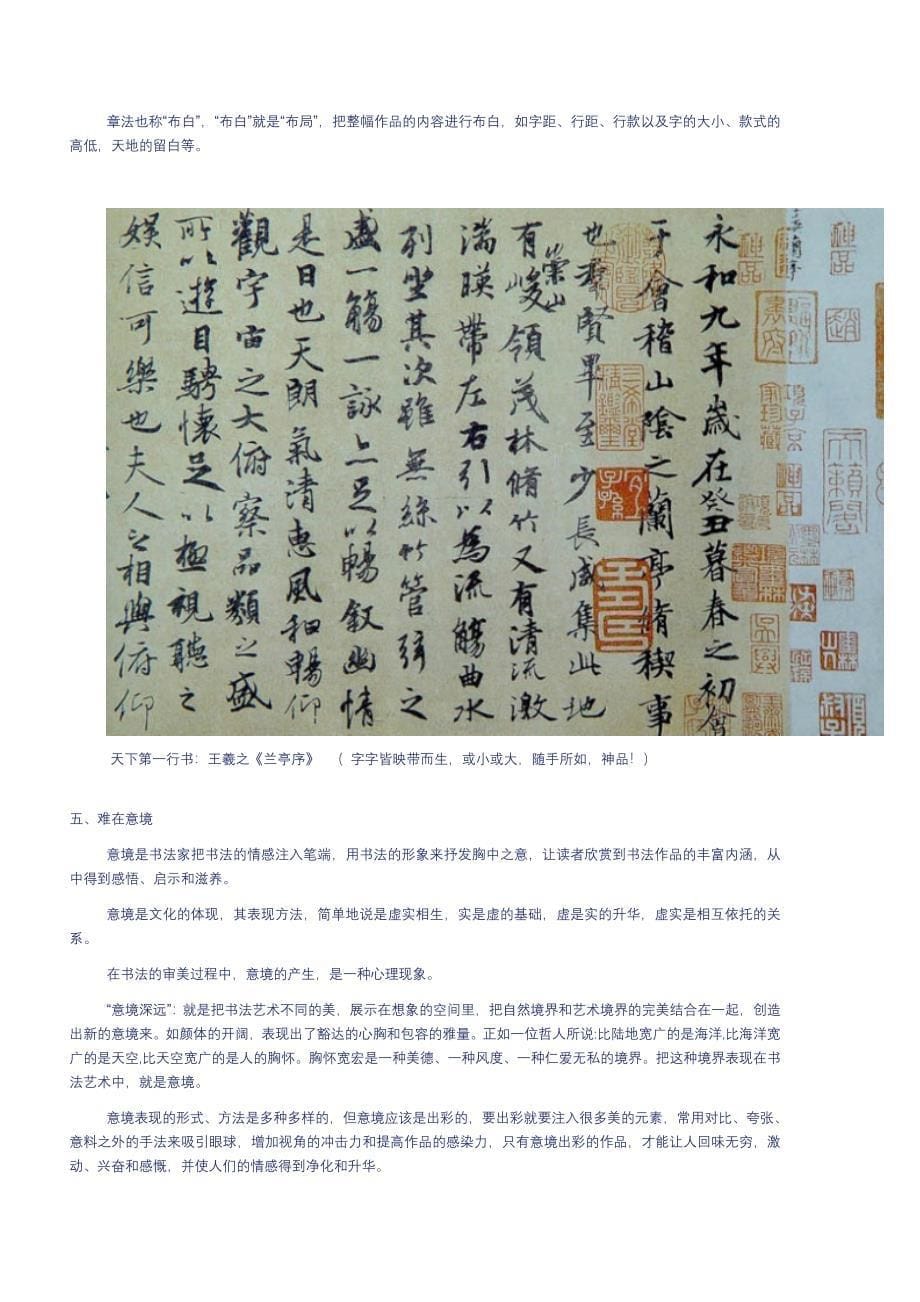 章法也称“布白”，“布白”就是“布局”，把整幅作品的内容进行布白，如字距、行距、行款以及字的大小、款式的
高低，天地的留白等。
永和九年歲在癸丑暮春之初會
于會稽山陰之蘭亭脩稧事
也羣賢畢至少長咸集此地
有崇山峻領茂林脩竹又有清流激
湍暎帶左右引以為流觴曲水
列坐其次雖無絲竹管弦之
盛一觴一詠亦足以暢敘幽情
是日也天朗氣清惠風和暢仰
觀宇宙之大俯察品類之盛
所以遊目騁懷足以極視聽之
娛信可樂也夫人之相與俯仰
天下第一行书：王羲之《兰亭序》 （ 字字皆映带而生，或小或大，随手所如，神品！）
五、难在意境
意境是书法家把书法的情感注入笔端，用书法的形象来抒发胸中之意，让读者欣赏到书法作品的丰富内涵，从
中得到感悟、启示和滋养。
意境是文化的体现，其表现方法，简单地说是虚实相生，实是虚的基础，虚是实的升华，虚实是相互依托的关
系。
在书法的审美过程中，意境的产生，是一种心理现象。
“意境深远”：就是把书法艺术不同的美，展示在想象的空间里，把自然境界和艺术境界的完美结合在一起，创造
出新的意境来。如颜体的开阔，表现出了豁达的心胸和包容的雅量。正如一位哲人所说:比陆地宽广的是海洋,比海洋宽
广的是天空,比天空宽广的是人的胸怀。胸怀宽宏是一种美德、一种风度、一种仁爱无私的境界。把这种境界表现在书
法艺术中，就是意境。
意境表现的形式、方法是多种多样的，但意境应该是出彩的，要出彩就要注入很多美的元素，常用对比、夸张、
意料之外的手法来吸引眼球，增加视角的冲击力和提高作品的感染力，只有意境出彩的作品，才能让人回味无穷，激
动、兴奋和感慨，并使人们的情感得到净化和升华。